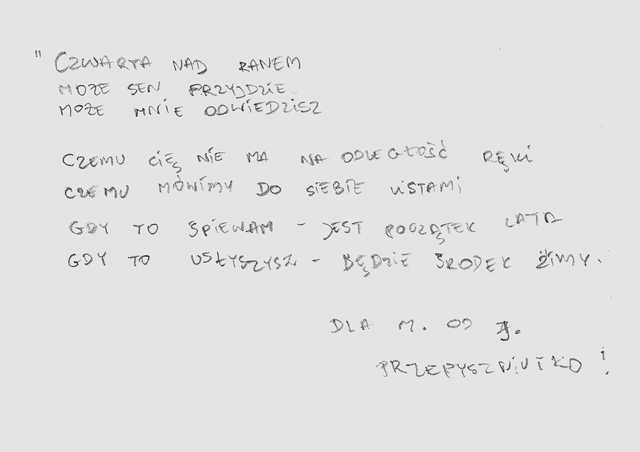 " CZWARTA NAD RANEM
MOŻE SEN PRZYJDZIE
MOŻE MNIE ODWIEDZISZ
CZEMU CIĘ NIE MA NA ODLEGŁOŚĆ RĘKI
CZEMU MÓWIMY DO SIEBIE LISTAMI
GDY TO ŚPIEWAM - JEST POCZĄTEK LATA
GDY TO USŁYSZYSZ - BĘDZIE ŚRODEK ZIMY.
DLA M. OD J.
PRZEPYSZNIUTKO!